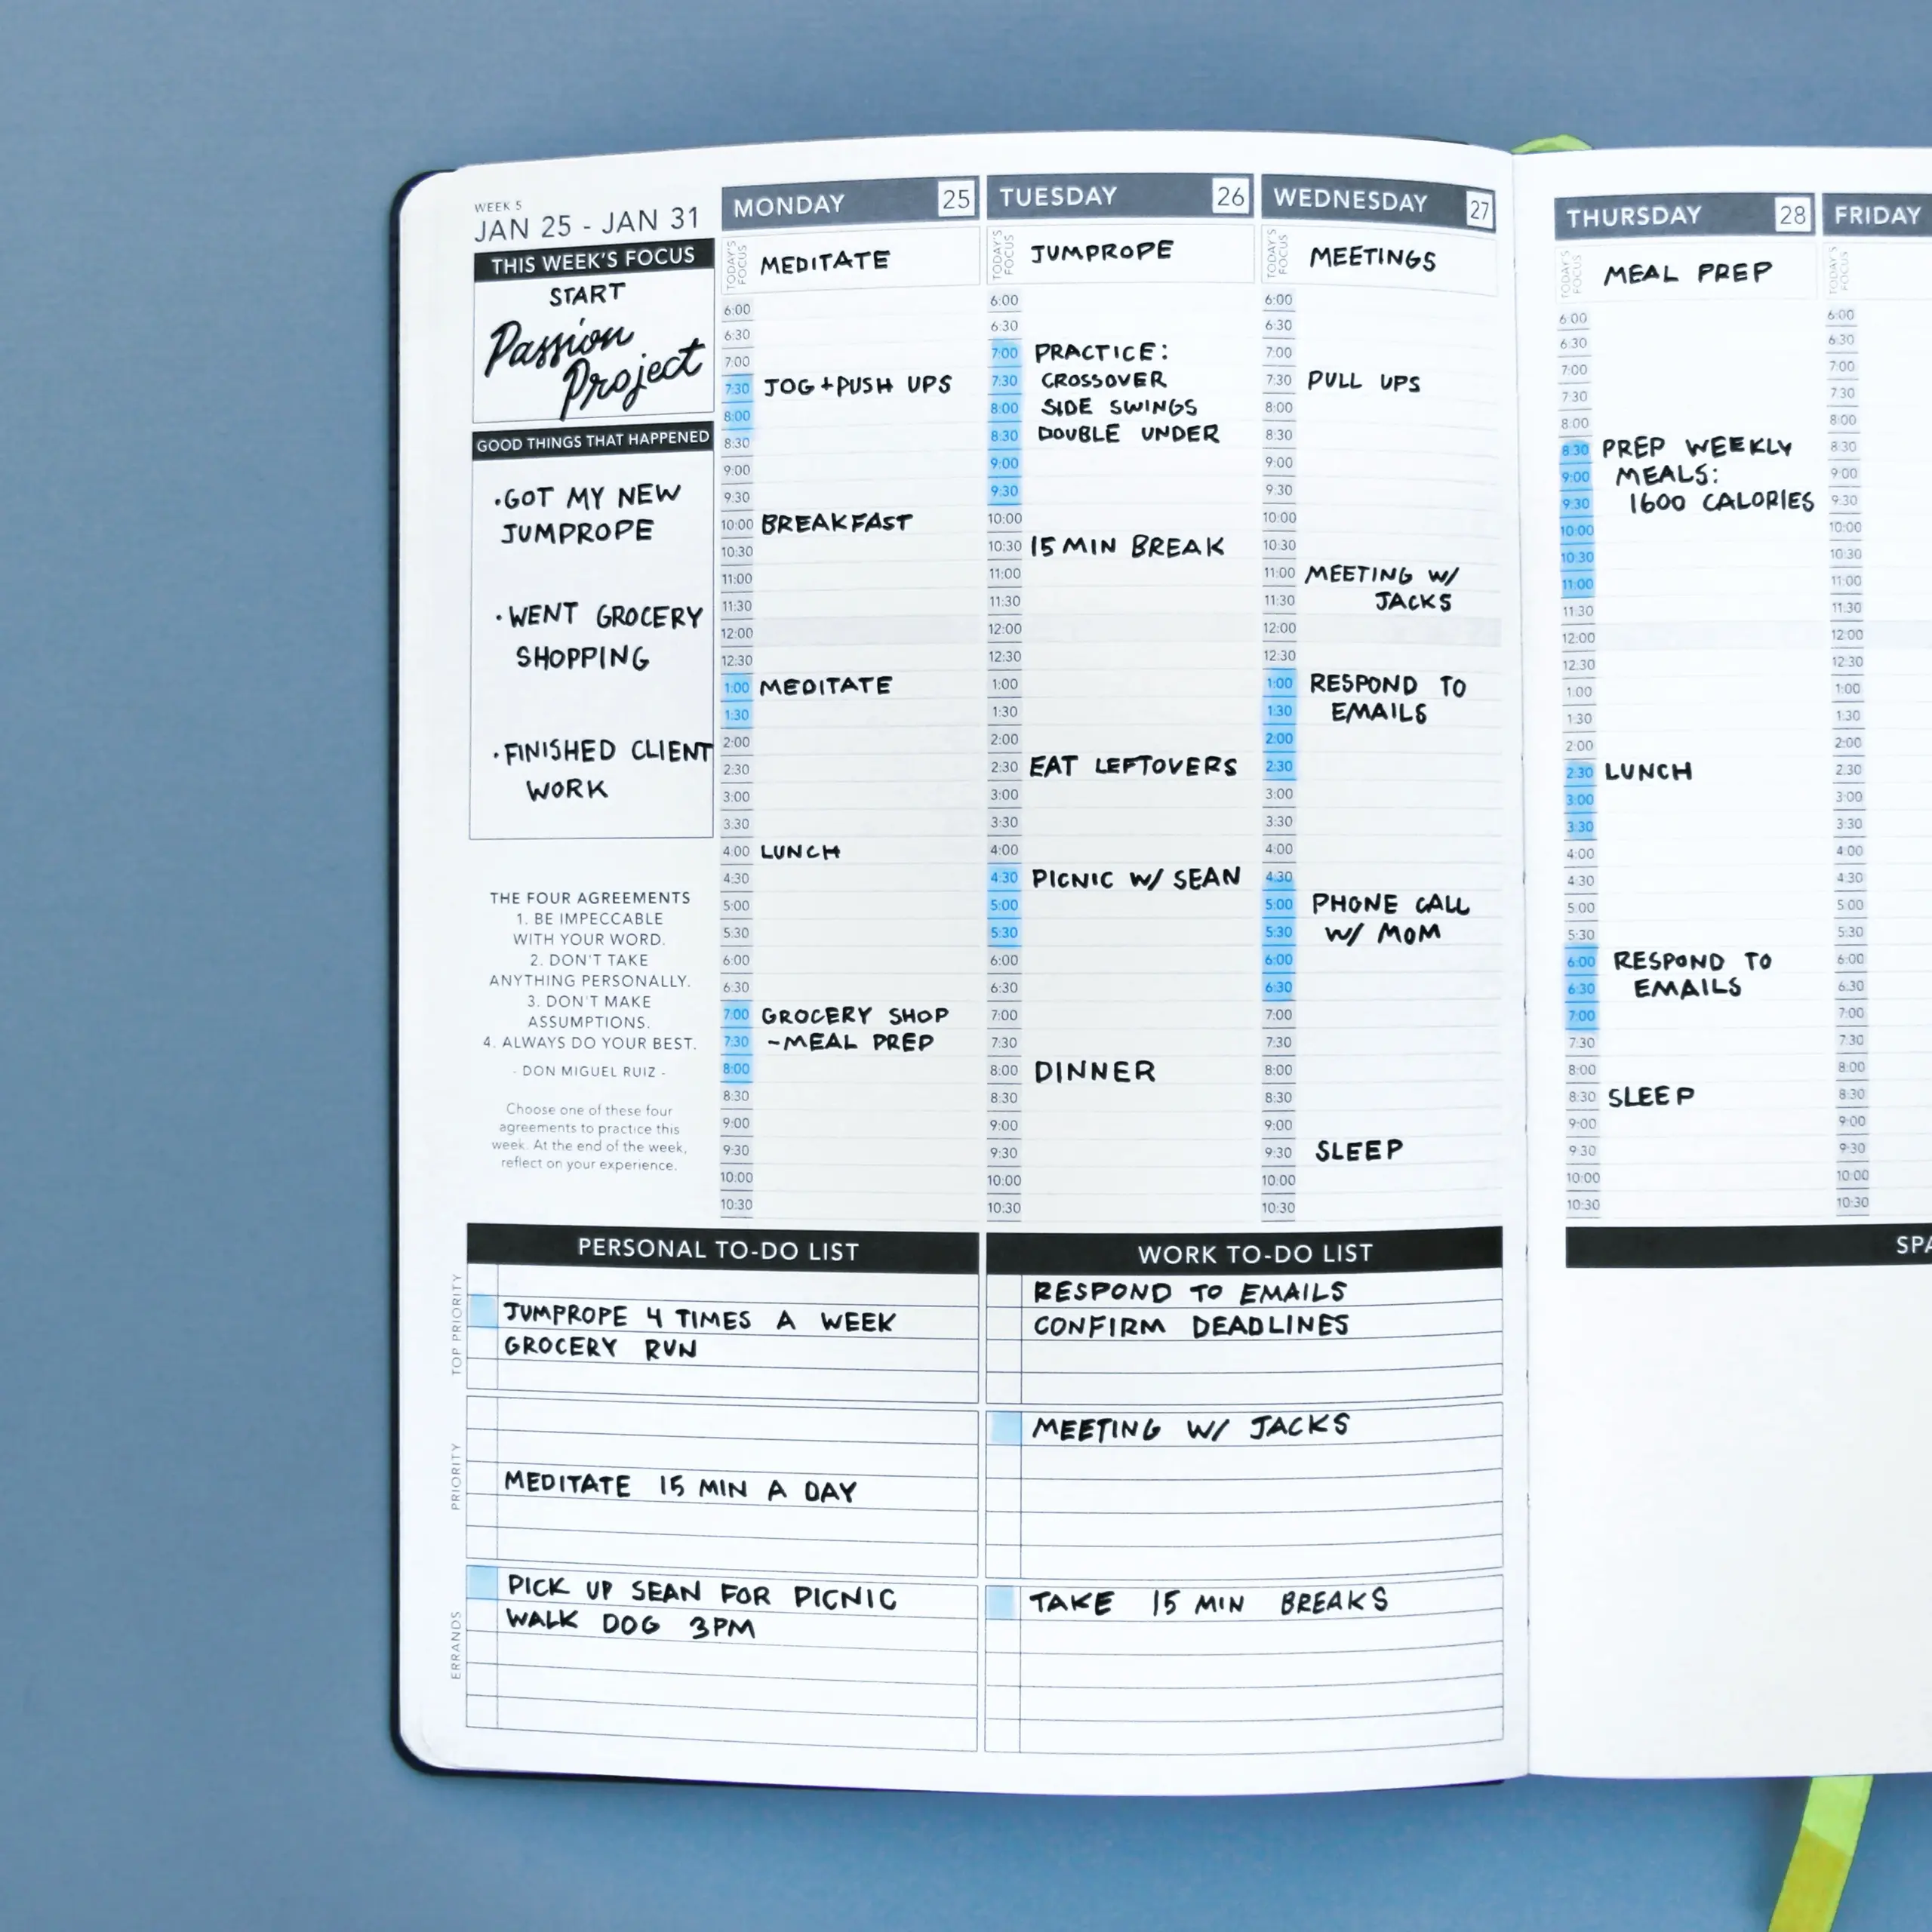 WEEK 5
JAN 25 - JAN 31
THIS WEEK'S FOCUS
START
Passion
Project
GOOD THINGS THAT HAPPENED
•GOT MY NEW
JUMPROPE
•WENT GROCERY
SHOPPING
•FINISHED CLIENT
WORK
THE FOUR AGREEMENTS
1. BE IMPECCABLE
WITH YOUR WORD.
2. DON'T TAKE
ANYTHING PERSONALLY.
3. DON'T MAKE
ASSUMPTIONS.
4. ALWAYS DO YOUR BEST.
- DON MIGUEL RUIZ -
Choose one of these four
agreements to practice this
week. At the end of the week,
reflect on your experience.
MONDAY 25
TODAY'S
FOCUS
MEDITATE
6:00
6:30
7:00
7:30 JOG + PUSH UPS
8:00
8:30
9:00
9:30
10:00 BREAKFAST
10:30
11:00
11:30
12:00
12:30
1:00 MEDITATE
1:30
2:00
2:30
3:00
3:30
4:00 LUNCH
4:30
5:00
5:30
6:00
6:30
7:00 GROCERY SHOP
7:30 -MEAL PREP
8:00
8:30
9:00
9:30
10:00
10:30
TUESDAY 26
TODAY'S
FOCUS
JUMPROPE
6:00
6:30
7:00 PRACTICE:
7:30 CROSSOVER
8:00 SIDE SWINGS
8:30 DOUBLE UNDER
9:00
9:30
10:00
10:30 15 MIN BREAK
11:00
11:30
12:00
12:30
1:00
1:30
2:00
2:30 EAT LEFTOVERS
3:00
3:30
4:00
4:30 PICNIC W/ SEAN
5:00
5:30
6:00
6:30
7:00
7:30
8:00 DINNER
8:30
9:00
9:30
10:00
10:30
WEDNESDAY 27
TODAY'S
FOCUS
MEETINGS
6:00
6:30
7:00
7:30 PULL UPS
8:00
8:30
9:00
9:30
10:00
10:30
11:00 MEETING W/
11:30 JACKS
12:00
12:30
1:00 RESPOND TO
1:30 EMAILS
2:00
2:30
3:00
3:30
4:00
4:30
5:00 PHONE CALL
5:30 W/ MOM
6:00
6:30
7:00
7:30
8:00
8:30
9:00
9:30 SLEEP
10:00
10:30
PERSONAL TO-DO LIST
TOP PRIORITY
JUMPROPE 4 TIMES A WEEK
GROCERY RUN
PRIORITY
MEDITATE 15 MIN A DAY
ERRANDS
PICK UP SEAN FOR PICNIC
WALK DOG 3PM
WORK TO-DO LIST
RESPOND TO EMAILS
CONFIRM DEADLINES
MEETING W/ JACKS
TAKE 15 MIN BREAKS
THURSDAY 28
TODAY'S
FOCUS
MEAL PREP
6:00
6:30
7:00
7:30
8:00
8:30 PREP WEEKLY
9:00 MEALS:
9:30 1600 CALORIES
10:00
10:30
11:00
11:30
12:00
12:30
1:00
1:30
2:00
2:30 LUNCH
3:00
3:30
4:00
4:30
5:00
5:30
6:00 RESPOND TO
6:30 EMAILS
7:00
7:30
8:00
8:30 SLEEP
9:00
9:30
10:00
10:30
FRIDAY
TODAY'S
FOCUS
6:00
6:30
7:00
7:30
8:00
8:30
9:00
9:30
10:00
10:30
11:00
11:30
12:00
12:30
1:00
1:30
2:00
2:30
3:00
3:30
4:00
4:30
5:00
5:30
6:00
6:30
7:00
7:30
8:00
8:30
9:00
9:30
10:00
10:30
SPA